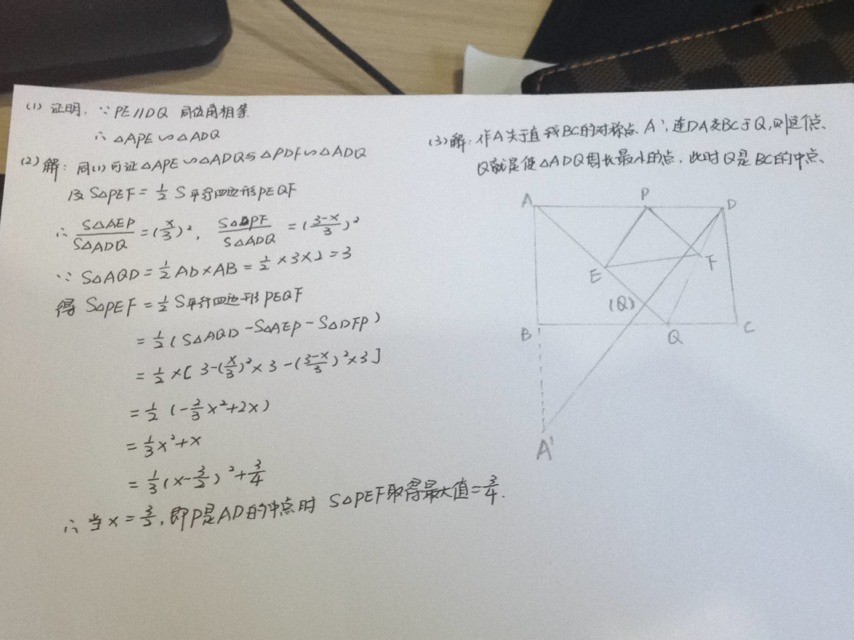 (1) 证明, ∵ PE∥DQ 同位角相等
∴ △APE ∽ △ADQ
(2) 解: 同(1)可证△APE ∽ △ADQ与△PDF ∽ △ADQ
及 S△PEF = 1/2 S平行四边形PEQF
∴ S△AEP/S△ADQ = (x/3)², S△DPF/S△ADQ = (3-x/3)²
∵ S△AQD = 1/2 AD×AB = 1/2 ×3×2 = 3
得 S△PEF = 1/2 S平行四边形PEQF
= 1/2 (S△AQD - S△AEP - S△DFP)
= 1/2 ×[ 3-(x/3)²×3 -(3-x/3)²×3]
= 1/2 (-2/3 x²+2x)
= 1/3 x²+x
= 1/3 (x-3/2)²+3/4
∴ 当x = 3/2, 即P是AD的中点时 S△PEF取得最大值=3/4.
(3)解: 作A关于直线BC的对称点A', 连DA'交BC于Q, 则这个点
Q就是使△ADQ周长最小的点, 此时Q是BC的中点、
A P D
E F
(Q)
B Q C
A'